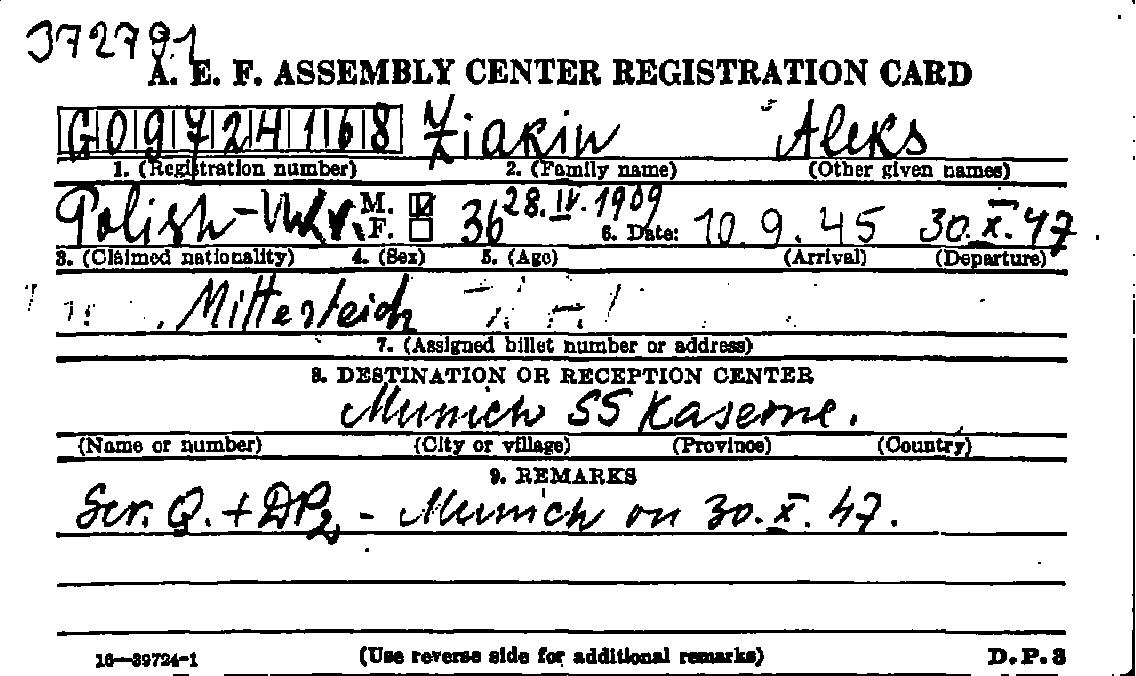 372791
A. E. F. ASSEMBLY CENTER REGISTRATION CARD
G09724168 Ziakin Aleks
1. (Registration number) 2. (Family name) (Other given names)
Polish-Ukr. M. F. 36 28.IV.1909 6. Date: 10.9.45 30.X.47
3. (Claimed nationality) 4. (Sex) 5. (Age) (Arrival) (Departure)
Mitterteich
7. (Assigned billet number or address)
8. DESTINATION OR RECEPTION CENTER
Munich SS Kaserne.
(Name or number) (City or village) (Province) (Country)
9. REMARKS
Scr. Q. + DP2 - Munich on 30.X.47.
16—39724-1 (Use reverse side for additional remarks) D.P.3